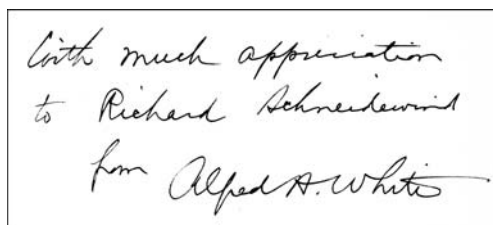 With much appreciation
to Richard Schneidewind
from Alfred H. White